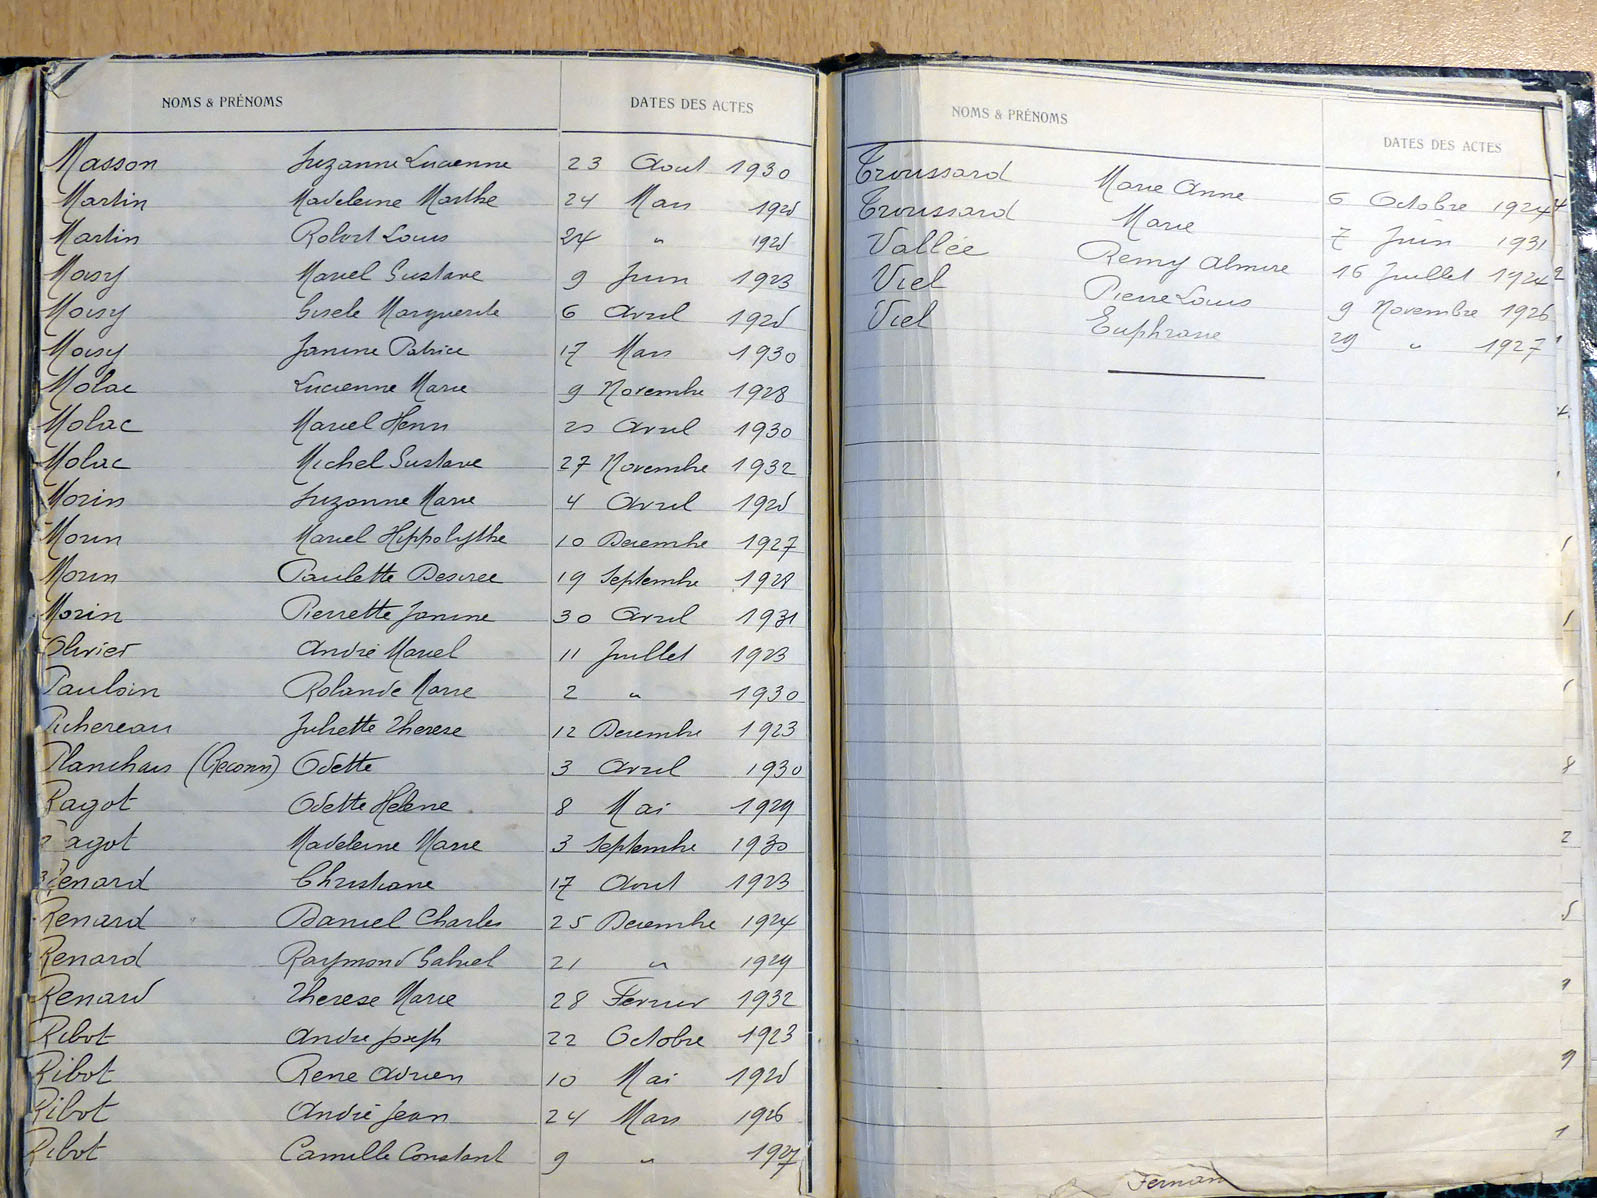 NOMS & PRÉNOMS DATES DES ACTES
Masson Suzanne Lucienne 23 Aout 1930
Martin Madeleine Marthe 24 Mars 1925
Martin Robert Louis 24 " 1925
Moisy Marcel Gustave 9 Juin 1923
Moisy Gisele Marguerite 6 Avril 1925
Moisy Janine Patrice 17 Mars 1930
Molac Lucienne Marie 9 Novembre 1928
Molac Marcel Henri 25 Avril 1930
Molac Michel Gustave 27 Novembre 1932
Morin Suzanne Marie 4 Avril 1925
Morin Marcel Hippolythe 10 Decembre 1927
Morin Paulette Desiree 19 Septembre 1928
Morin Pierrette Janine 30 Avril 1931
Olivier André Marcel 11 Juillet 1923
Pauloin Rolande Marie 2 " 1930
Pichereau Juliette Therese 12 Decembre 1923
Planchais (Reconn) Odette 3 Avril 1930
Ragot Odette Helene 8 Mai 1929
Ragot Madeleine Marie 3 Septembre 1930
Renard Christiane 17 Aout 1923
Renard Daniel Charles 25 Decembre 1924
Renard Raymond Gabriel 21 " 1929
Renard Therese Marie 28 Fevrier 1932
Ribot Andre Joseph 22 Octobre 1923
Ribot Rene Adrien 10 Mai 1925
Ribot André Jean 24 Mars 1926
Ribot Camille Constant 9 " 1927
NOMS & PRÉNOMS DATES DES ACTES
Troussard Marie Anne 6 Octobre 1924
Troussard Marie 7 Juin 1931
Vallée Remy Almire 16 Juillet 1924
Viel Pierre Louis 9 Novembre 1926
Viel Euphrasie 29 " 1927
Fernan